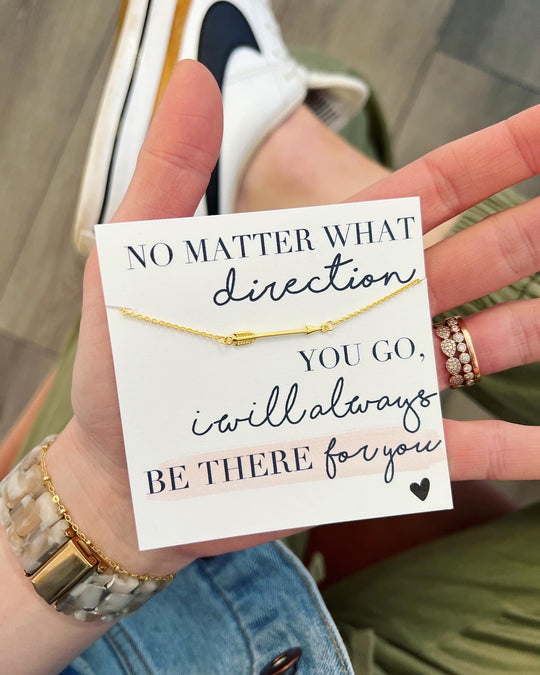 NO MATTER WHAT
direction
YOU GO,
i will always
BE THERE for you